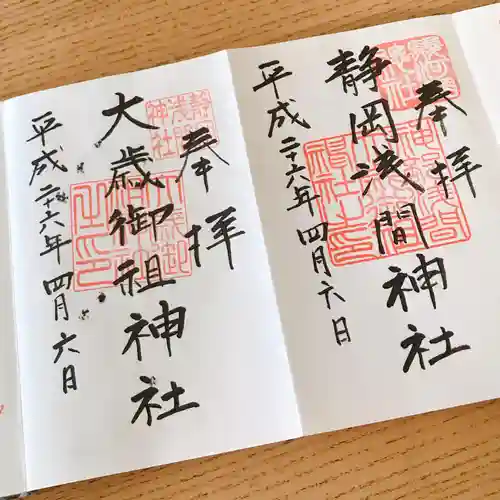 奉拝
静岡浅間神社
平成二十六年四月六日
奉拝
大歳御祖神社
平成二十六年四月六日